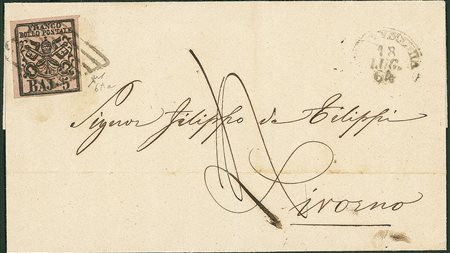 FRANCO
BOLLO POSTALE
BAJ 5
18
LUG.
64
Signor Filippo de Filippi
Livorno